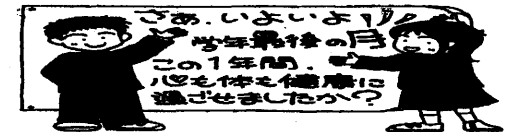 さあ、いよいよ!!
学年最後の月
この1年間、
心も体も健康に
過ごせましたか？